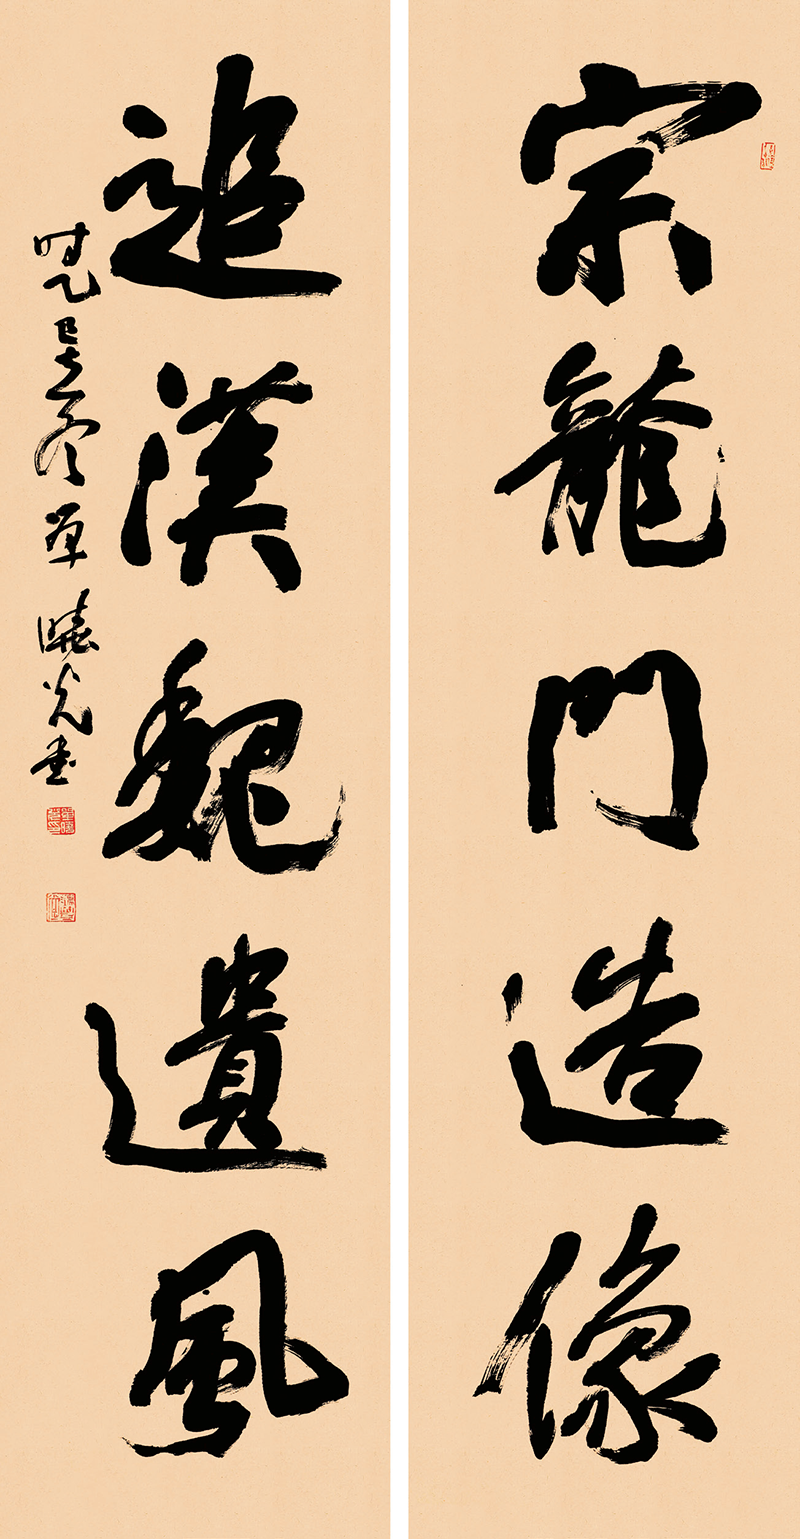 宗龍門造像
追漢魏遺風
時乙巳立冬草曉光書